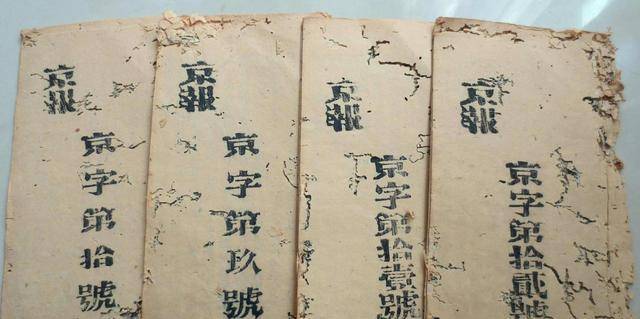 京報
京字第拾號
京報
京字第玖號
京報
京字第拾壹號
京報
京字第拾貳號